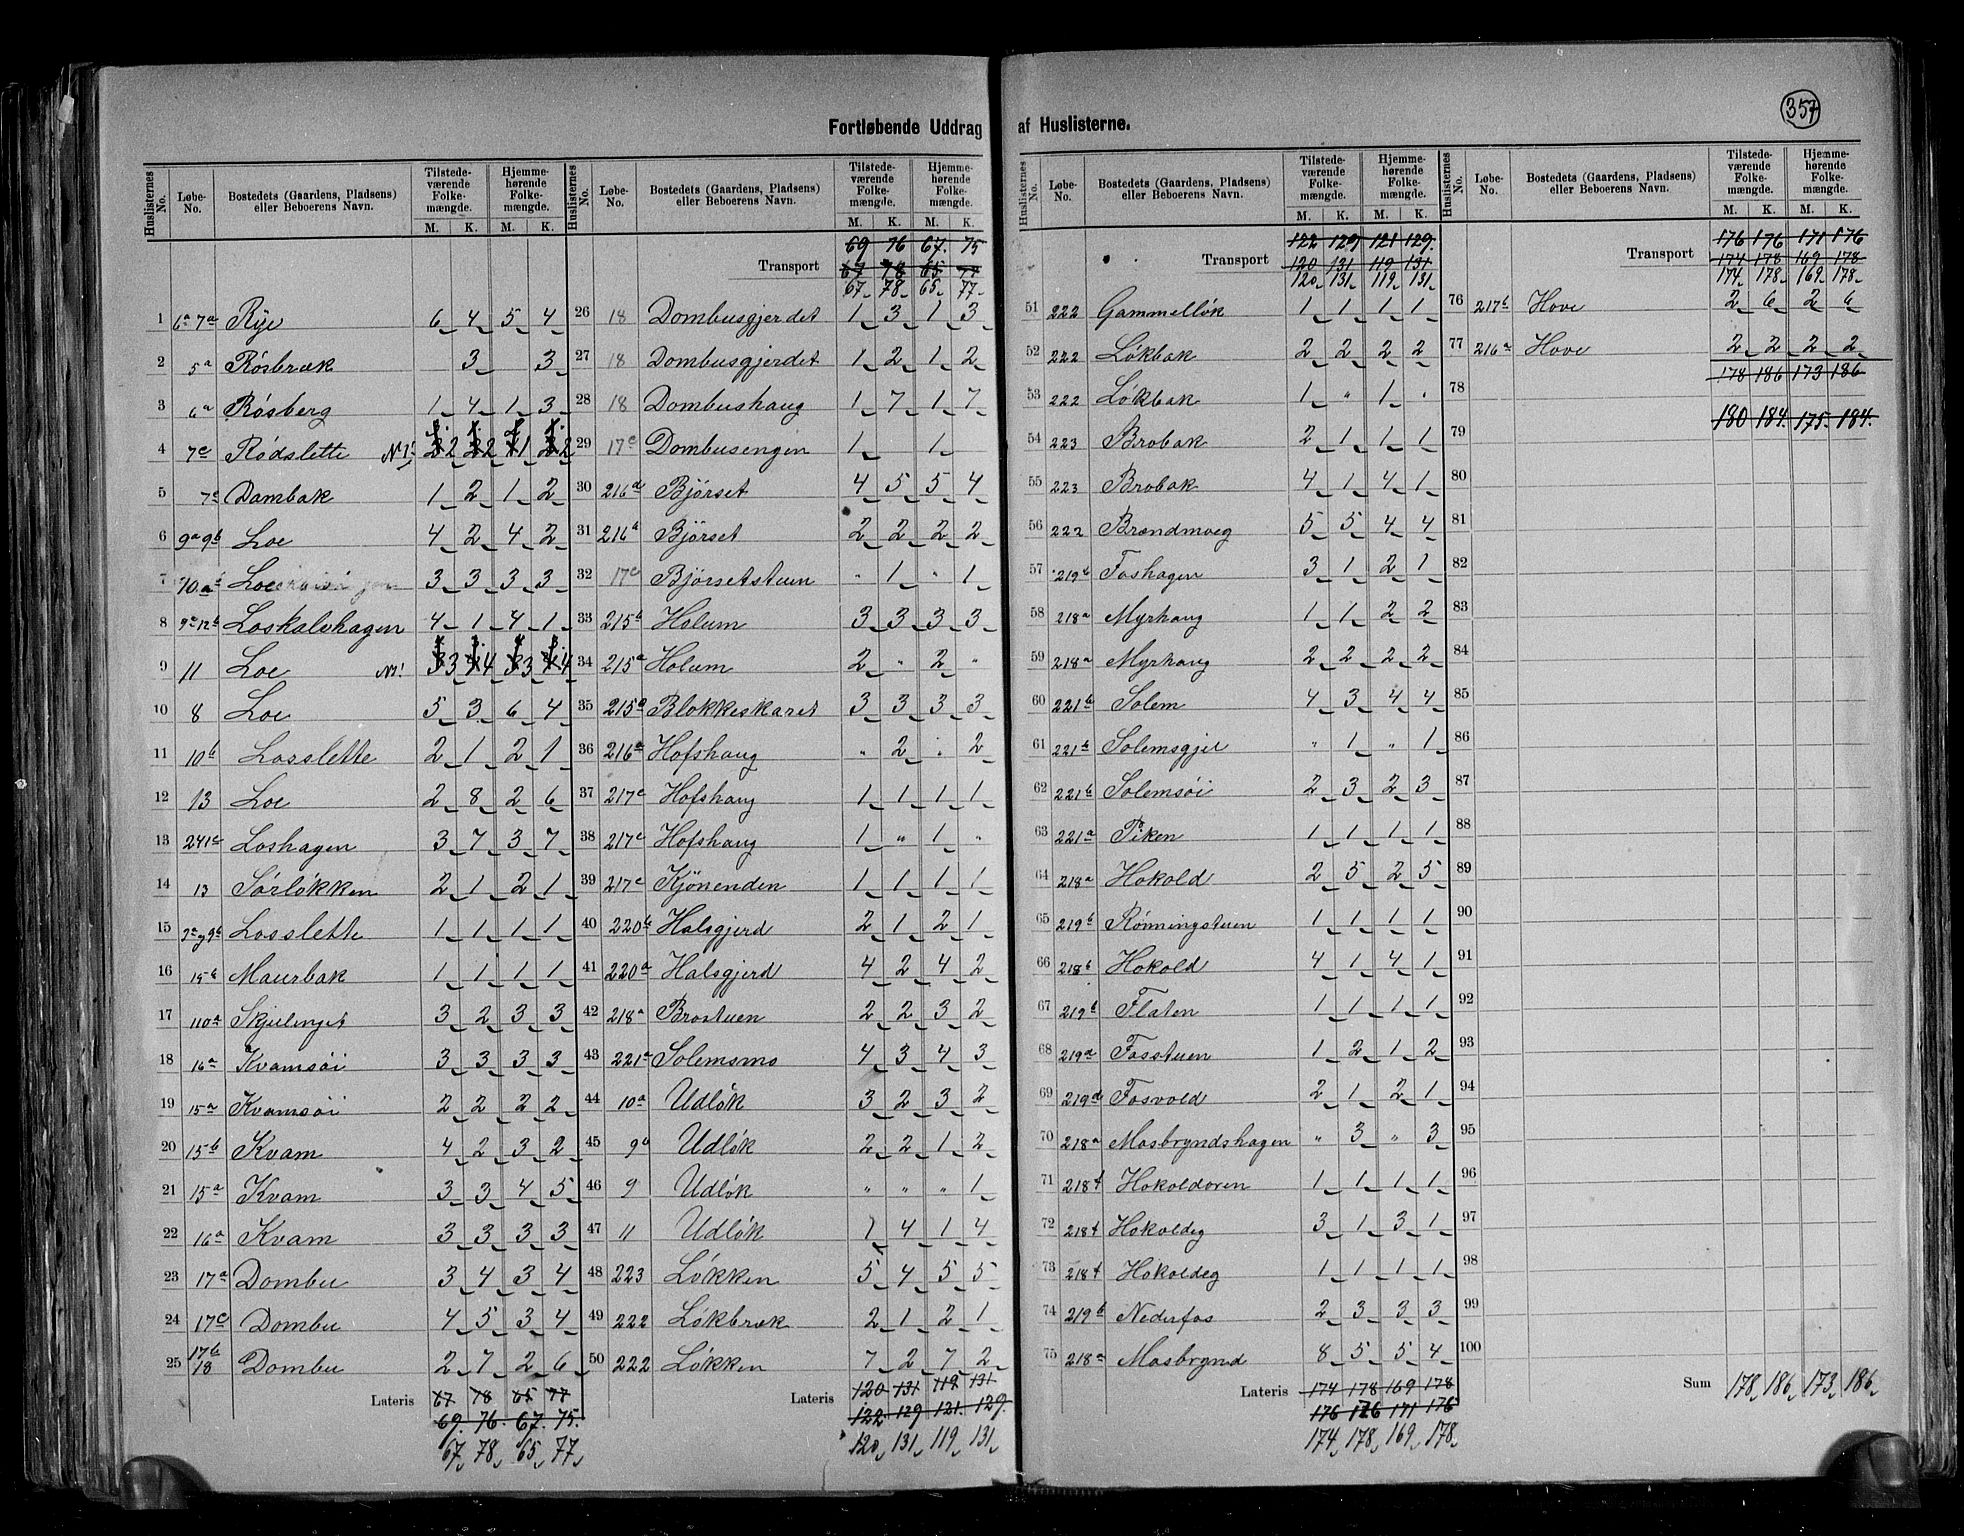 357
Fortløbende Uddrag af Huslisterne.
Huslisternes No.
Løbe-No.
Bostedets (Gaardens, Pladsens) eller Beboerens Navn.
Tilstedeværende Folkemængde.
Hjemmehørende Folkemængde.
M. K. M. K.
1 6a 7a Rye 6 4 5 4
2 5a Røsbræk 3 3
3 6a Røsberg 1 4 1 3
4 7c Rødslette N1! 2 2 1 2
5 7c Dambak 1 2 1 2
6 9a 9b Loe 4 2 4 2
7 10a Loe 3 3 3 3
8 9c 12b Loskalvhagen 4 1 4 1
9 11 Loe N! 3 4 3 4
10 8 Loe 5 3 6 4
11 10b Losslette 2 1 2 1
12 13 Loe 2 8 2 6
13 241c Loshagen 3 7 3 7
14 13 Sørløkken 2 1 2 1
15 Losslette 1 1 1 1
16 15b Maurbak 1 1 1 1
17 110a Skjulenget 3 2 3 3
18 16a Kvamsøi 3 3 3 3
19 15a Kvamsøi 2 2 2 2
20 15b Kvam 4 2 3 2
21 15a Kvam 3 3 4 5
22 16a Kvam 3 3 3 3
23 17a Dombu 3 4 3 4
24 17c Dombu 4 5 3 4
25 17b 18 Dombu 2 7 2 6
Lateris 67 78 65 77
69. 76. 67. 75.
67 78 65 77
Huslisternes No.
Løbe-No.
Bostedets (Gaardens, Pladsens) eller Beboerens Navn.
Tilstedeværende Folkemængde.
Hjemmehørende Folkemængde.
M. K. M. K.
69 76 67. 75
Transport 67 78 65 77
67 78 65 77
26 18 Dombusgjerdet 1 3 1 3
27 18 Dombusgjerdet 1 2 1 2
28 18 Dombushaug 1 7 1 7
29 17c Dombusengen 1 1
30 216a Bjørset 4 5 5 4
31 216a Bjørset 2 2 2 2
32 17c Bjørsetstuen " 1 " 1
33 215b Holum 3 3 3 3
34 215a Holum 2 " 2 "
35 215a Blokkeskaret 3 3 3 3
36 216a Hofshaug " 2 " 2
37 217c Hofshaug 1 1 1 1
38 217c Hofshaug 1 " 1 "
39 217c Kjønenden 1 1 1 1
40 220b Halsgjerd 2 1 2 1
41 220a Halsgjerd 4 2 4 2
42 218a Brostuen 2 2 3 2
43 221a Solemsmo 4 3 4 3
44 10a Udløk 3 2 3 2
45 9b Udløk 2 2 1 2
46 9 Udløk " " " 1
47 11 Udløk 1 4 1 4
48 223 Løkken 5 4 5 5
49 222 Løkbræk 2 1 2 1
50 222 Løkken 7 2 7 2
Lateris 120 131 119 131
122 129 121. 129.
120 131 119 131
Huslisternes No.
Løbe-No.
Bostedets (Gaardens, Pladsens) eller Beboerens Navn.
Tilstedeværende Folkemængde.
Hjemmehørende Folkemængde.
M. K. M. K.
122 129 121 129.
Transport 120 131 119 131
120 131 119 131
51 222 Gammelløk 1 1 1 1
52 222 Løkbak 2 2 2 2
53 222 Løkbak 1 " 1 "
54 223 Brobak 2 1 1 1
55 223 Brobak 4 1 4 1
56 222 Brændmoeg 5 5 4 4
57 219b Foshagen 3 1 2 1
58 218a Myrhaug 1 1 2 2
59 218a Myrhaug 2 2 2 2
60 221b Solem 4 3 4 4
61 221b Solemsgjel " 1 " 1
62 221b Solemsøi 2 3 2 3
63 221a Piken 1 1 1 1
64 218a Hokold 2 5 2 5
65 219b Rønningstuen 1 1 1 1
66 218b Hokold 4 1 4 1
67 219b Flaten 1 1 1 1
68 219a Fosstuen 1 2 1 2
69 219d Fosvold 2 1 2 1
70 218a Mosbryndshagen " 3 " 3
71 218f Hokoldoren 1 1 1 1
72 218f Hokoldeg 3 1 3 1
73 218f Hokoldeg 1 1 1 1
74 219b Nederfos 2 3 3 3
75 218a Mosbrynd 8 5 5 4
Lateris 174 178 169 178
176 176 171 176
174 178 169 178
Huslisternes No.
Løbe-No.
Bostedets (Gaardens, Pladsens) eller Beboerens Navn.
Tilstedeværende Folkemængde.
Hjemmehørende Folkemængde.
M. K. M. K.
176 176 171 176
Transport 174 178 169 178
174 178 169 178
76 217b Hove 2 6 2 6
77 216a Hove 2 2 2 2
178 186 173 186
78
180 184. 175. 184.
79
80
81
82
83
84
85
86
87
88
89
90
91
92
93
94
95
96
97
98
99
100
Sum 178 186 173 186